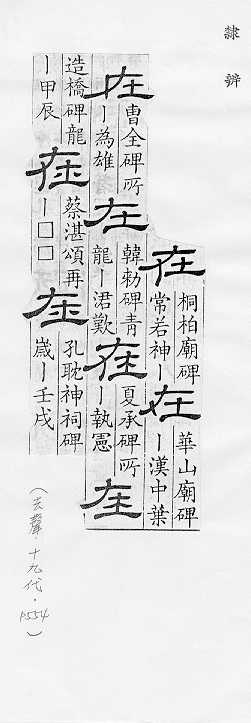 隸辨
在桐柏廟碑常若神丨在華山廟碑丨漢中葉
在曹全碑所丨為雄在韓勑碑青龍丨涒歎在夏承碑所丨執憲在
造橋碑龍丨甲辰在蔡湛頌再丨□□在孔耽神祠碑歲丨壬戌
(去聲．十九代．P554)